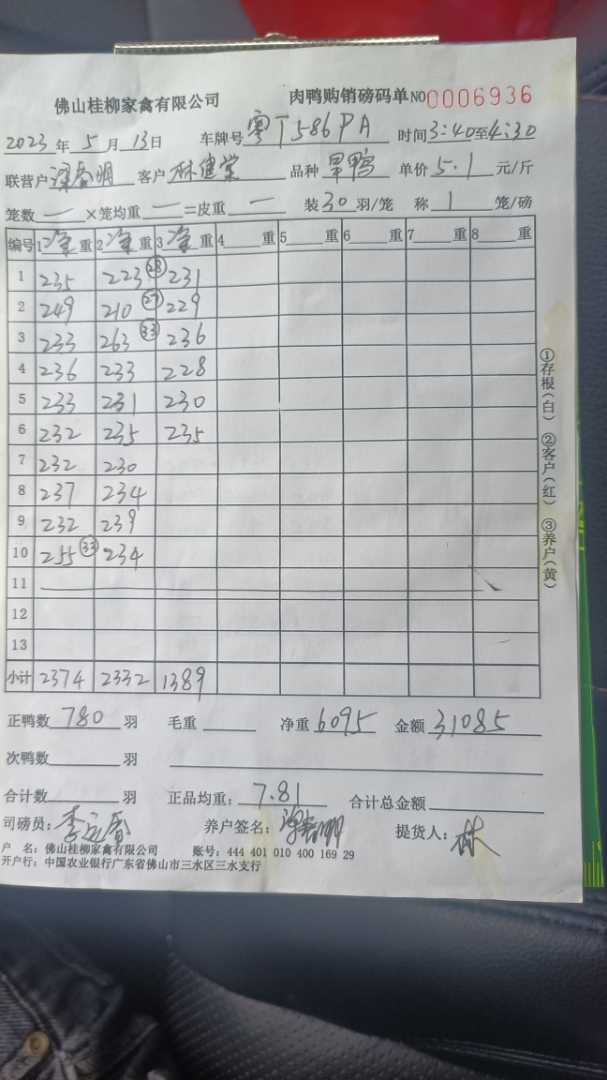 佛山桂柳家禽有限公司 肉鸭购销磅码单 NO 0006936
2023 年 5 月 13 日 车牌号 粤T586PA 时间 3:40 至 4:30
联营户 客户 林建棠 品种 旱鸭 单价 5.1 元/斤
笼数 一 ×笼均重 一 =皮重 一 装 30 羽/笼 称 1 笼/磅
编号 1 净 重 2 净 重 3 净 重 4 重 5 重 6 重 7 重 8 重
1 235 223 (28) 231
2 249 210 (27) 229
3 233 263 (33) 236
4 236 233 228
5 233 231 230
6 232 235 235
7 232 230
8 237 234
9 232 239
10 255 (33) 234
11
12
13
小计 2374 2332 1389
正鸭数 780 羽 毛重 净重 6095 金额 31085
次鸭数 羽
合计数 羽 正品均重: 7.81 合计总金额
司磅员: 养户签名: 提货人: 林
户 名: 佛山桂柳家禽有限公司 账号: 444 401 010 400 169 29
开户行: 中国农业银行广东省佛山市三水区三水支行
①存根(白) ②客户(红) ③养户(黄)